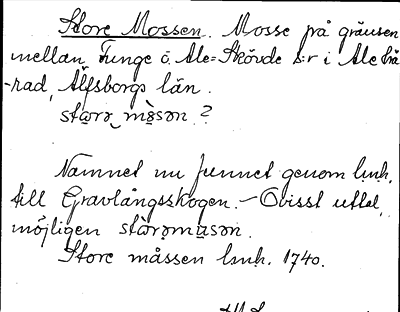 Store Mossen. Mosse på gränsen
mellan Tunge o. Ale-Skövde s:r i Ale hä-
-rad, Älfsborgs län.
stɷrə mɷ̀sən ?
Namnet nu funnet genom lmh.
till Gravlångsskogen. – Ovisst uttal,
möjligen stɷ̀rəmusən.
Store måssen lmh. 1740.